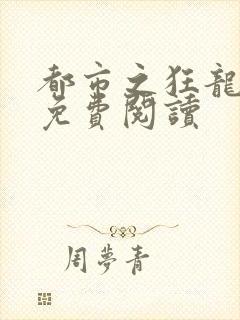 都市之狂龍
免費閱讀
周夢青